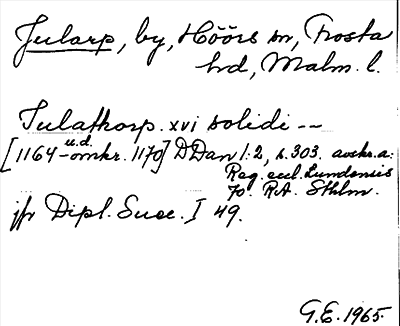 Jularp, by, Höörs sn, Frosta
hd, Malm. l.
Julathorp. xvi solidi --
[1164 u.d. - omkr. 1170] DDan 1:2, s. 303. avskr. a:
Reg. eccl. Lundensis
fo. RA. Sthlm.
jfr Dipl. Suec. I 49.
G.E. 1965.